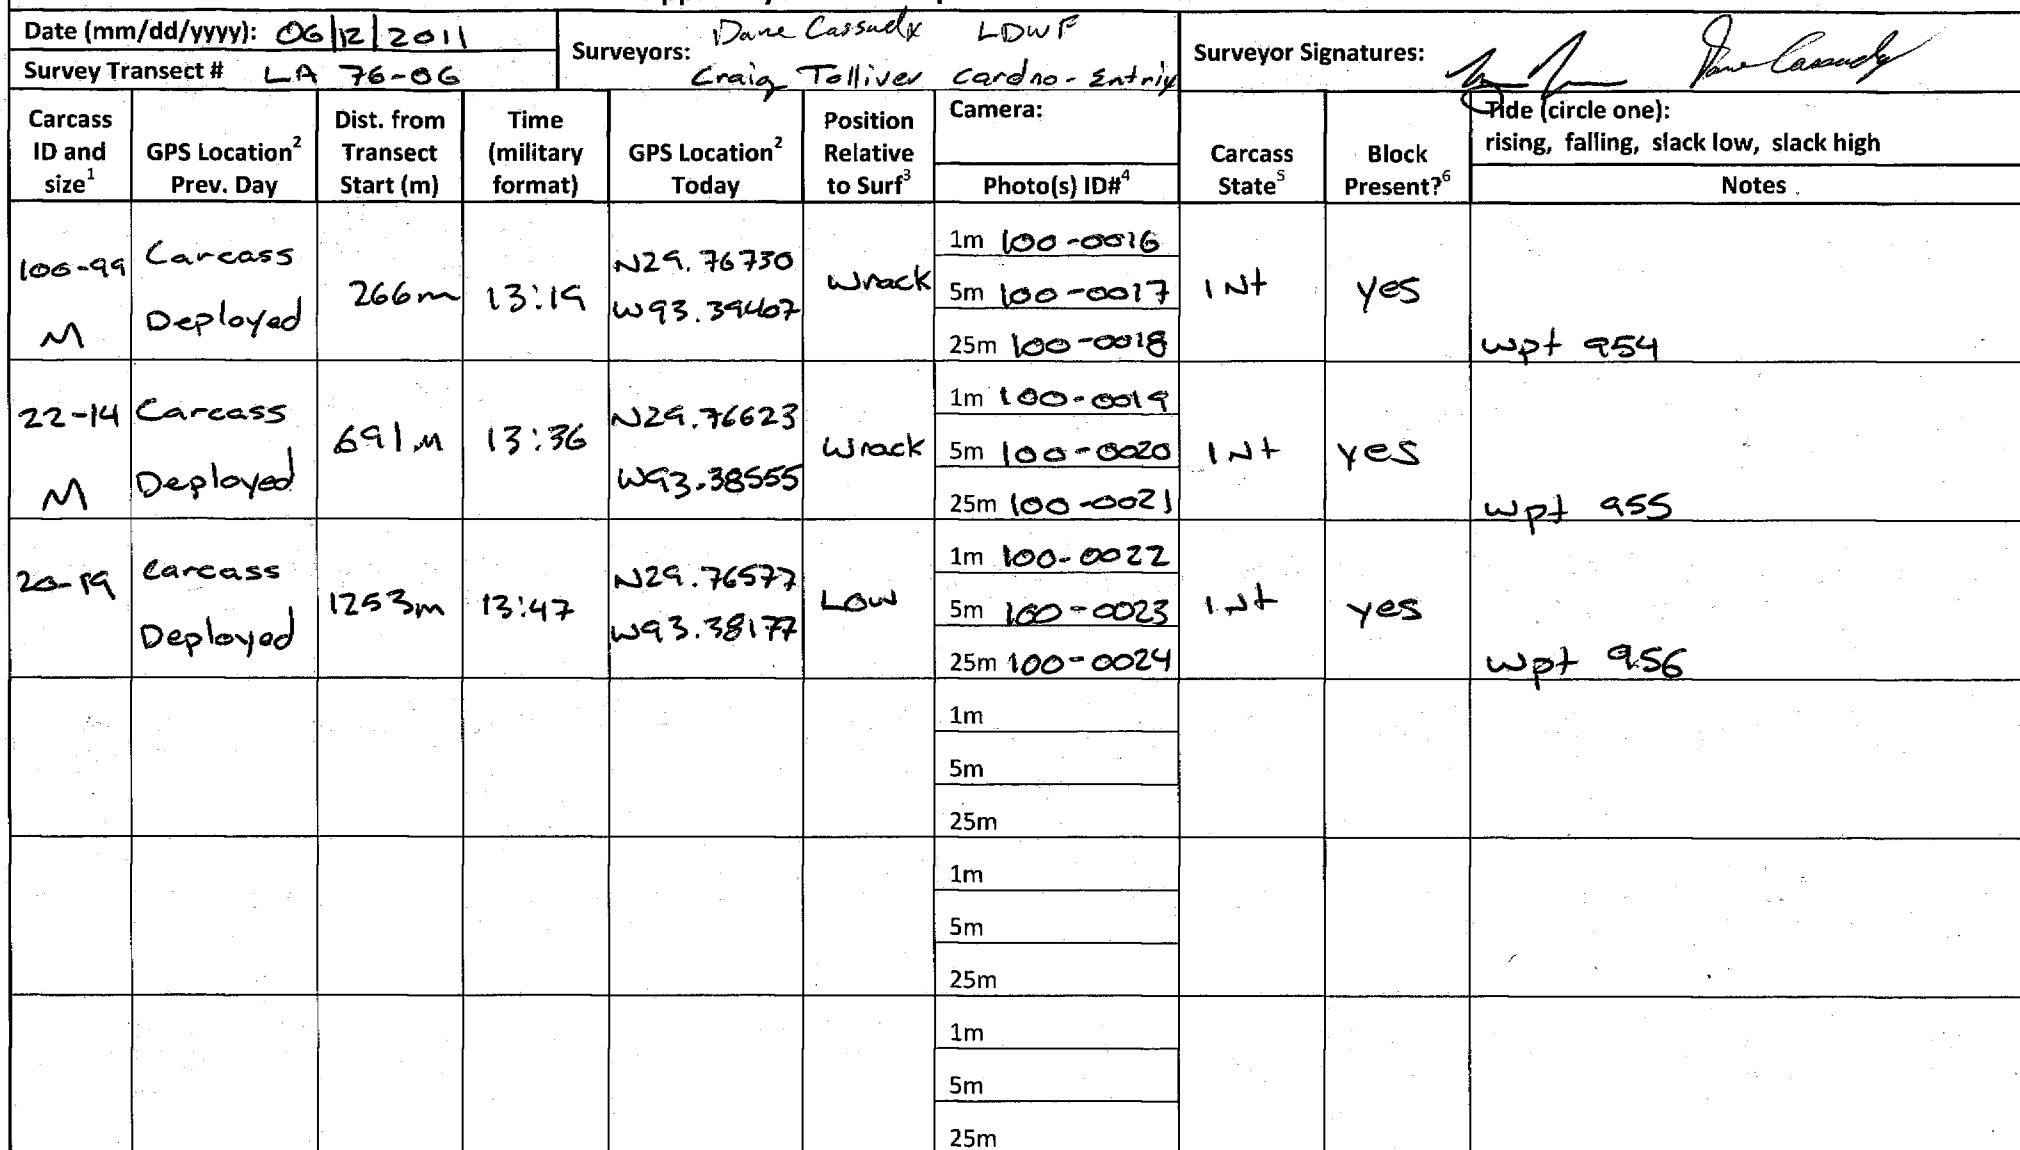 Date (mm/dd/yyyy): 06/12/2011
Survey Transect # LA 76-06
Surveyors: Dane Cassady LDWF
Craig Tolliver Cardno-Entrix
Surveyor Signatures: Dane Cassady
Carcass ID and size1
GPS Location2 Prev. Day
Dist. from Transect Start (m)
Time (military format)
GPS Location2 Today
Position Relative to Surf3
Camera:
Photo(s) ID#4
Carcass State5
Block Present?6
Tide (circle one):
rising, falling, slack low, slack high
Notes
100-99 M
Carcass Deployed
266m
13:19
N29.76730
W93.39407
Wrack
1m 100-0016
5m 100-0017
25m 100-0018
INt
yes
wpt 954
22-14 M
Carcass Deployed
691m
13:36
N29.76623
W93.38555
Wrack
1m 100-0019
5m 100-0020
25m 100-0021
INt
yes
wpt 955
20-19
Carcass Deployed
1253m
13:47
N29.76577
W93.38177
Low
1m 100-0022
5m 100-0023
25m 100-0024
INt
yes
wpt 956
1m
5m
25m
1m
5m
25m
1m
5m
25m